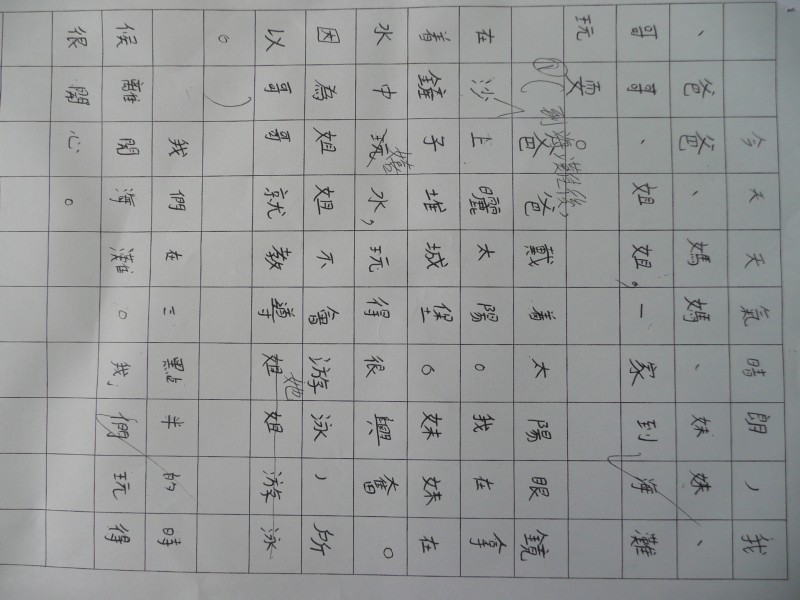 今天天氣晴朗，我
、爸爸、媽媽、妹妹、
哥哥、姐姐。一家到海灘
玩耍。
到海灘後，
爸爸戴着太陽眼鏡
在沙上曬太陽。我在拿
着鏟子堆城堡。妹妹在
水中玩水，玩得很興奮。
因為姐姐不會游泳，所
她
以哥哥就教導姐姐游泳
。
我們在二點半的時
候離開海灘。我們玩得
很開心。